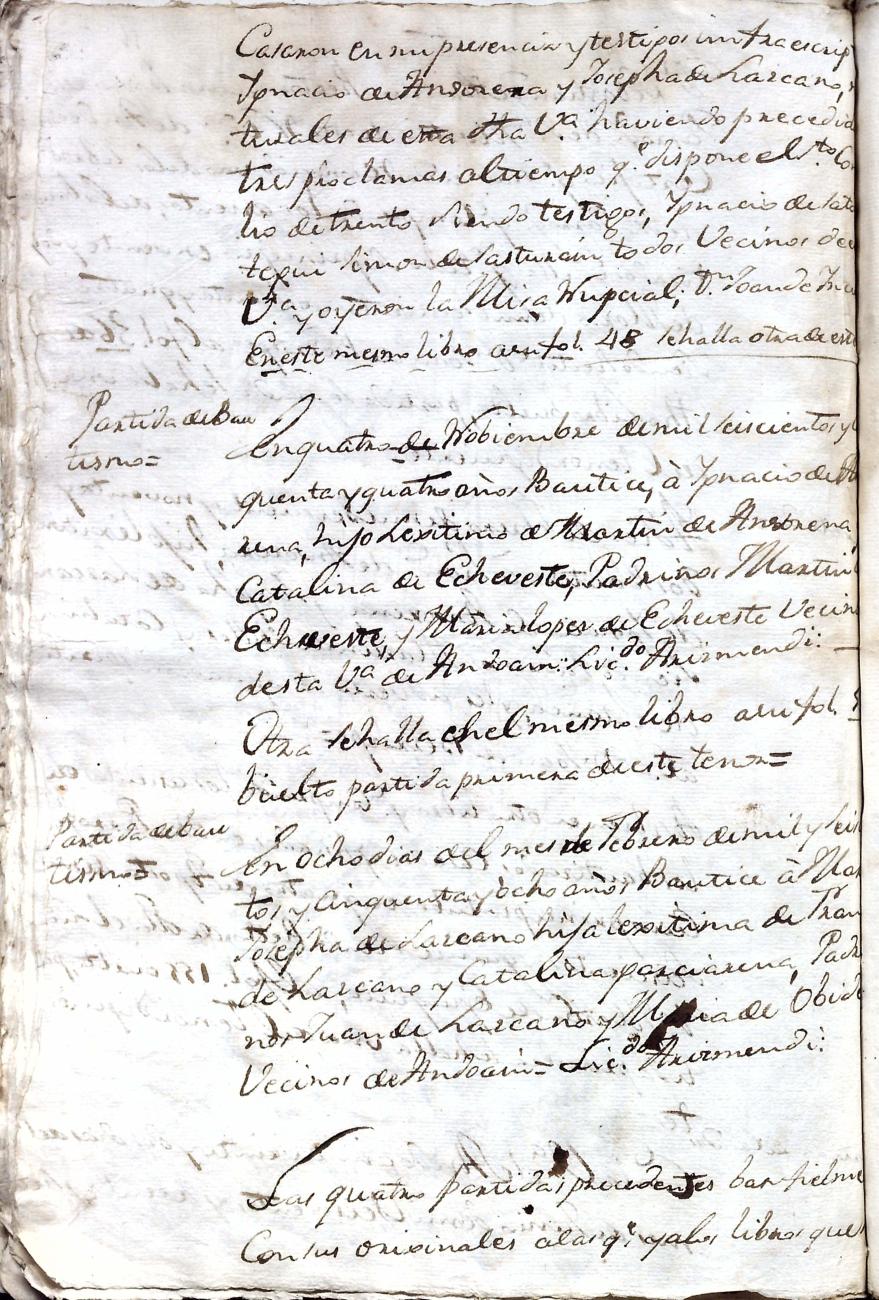 Casaron en mi presencia y testigos infraescrip
Ygnacio de Andorena y Josepha de Larcano,
turales de esta dha Vª haviendo precedid
tres proclamas al tiempo q.e dispone el s.to Co
lio de trento siendo testigos, Ygnacio de
tegui Simon de Lasturain todos Vecinos de
V.ª y oyeron la Misa Nupcial; D.n Joan de
En este mesmo libro a su fol. 48 se halla otra de este
Partida de Bau
tismo=
En quatro de Nobiembre de mil seiscientos y
quenta y quatro años Bautice, à Ygnacio de
rena, hijo Lexitimo de Martin de Andorena
Catalina de Echeveste, Padrinos Martin
Echeveste, y Maria lopes de Echeveste Vecin
desta Vª de Andoain: Lic.do Arizmendi:
Otra se halla en el mesmo libro a su fol.
buelto partida primera de este tenor=
Partida de bau
tismo=
En ocho dias del mes de Febrero de mil y seis
tos y cinquenta y ocho años Bautice à Mar
Josepha de Larcano hija lexitima de Fran
de Larcano y Catalina garciarena, Padr
nos Juan de Larcano y Maria de Obid
Vecinos de Andoain= Lic.do Arizmendi:
Las quatro partidas precedentes ban fielme
Con sus orixinales a las q.e y a los libros que